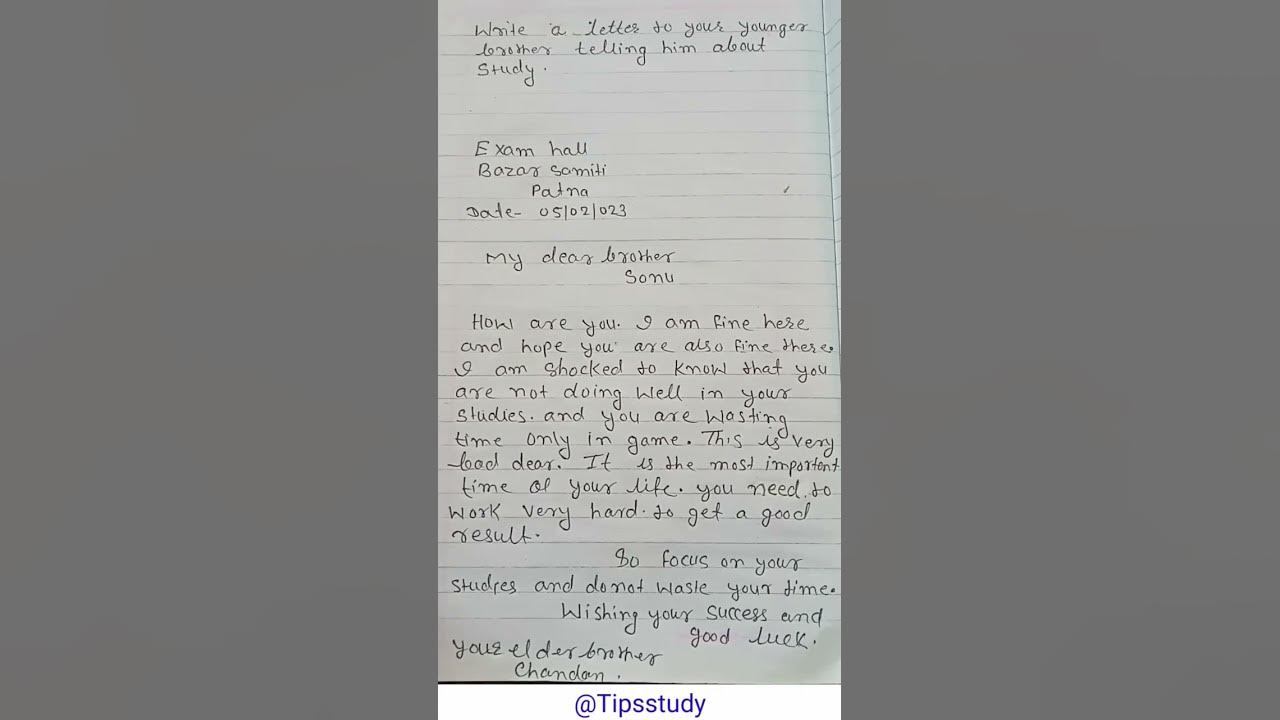 Write a letter to your younger
brother telling him about
Study.
Exam hall
Bazar Samiti
Patna
Date- 05/02/023
My dear brother
Sonu
How are you. I am fine here
and hope you are also fine there.
I am shocked to know that you
are not doing well in your
studies. and you are wasting
time only in game. This is very
bad dear. It is the most important
time of your life. you need to
work very hard to get a good
result.
So focus on your
studies and donot waste your time.
Wishing your success and
good luck.
your elder brother
Chandan.
@Tipsstudy